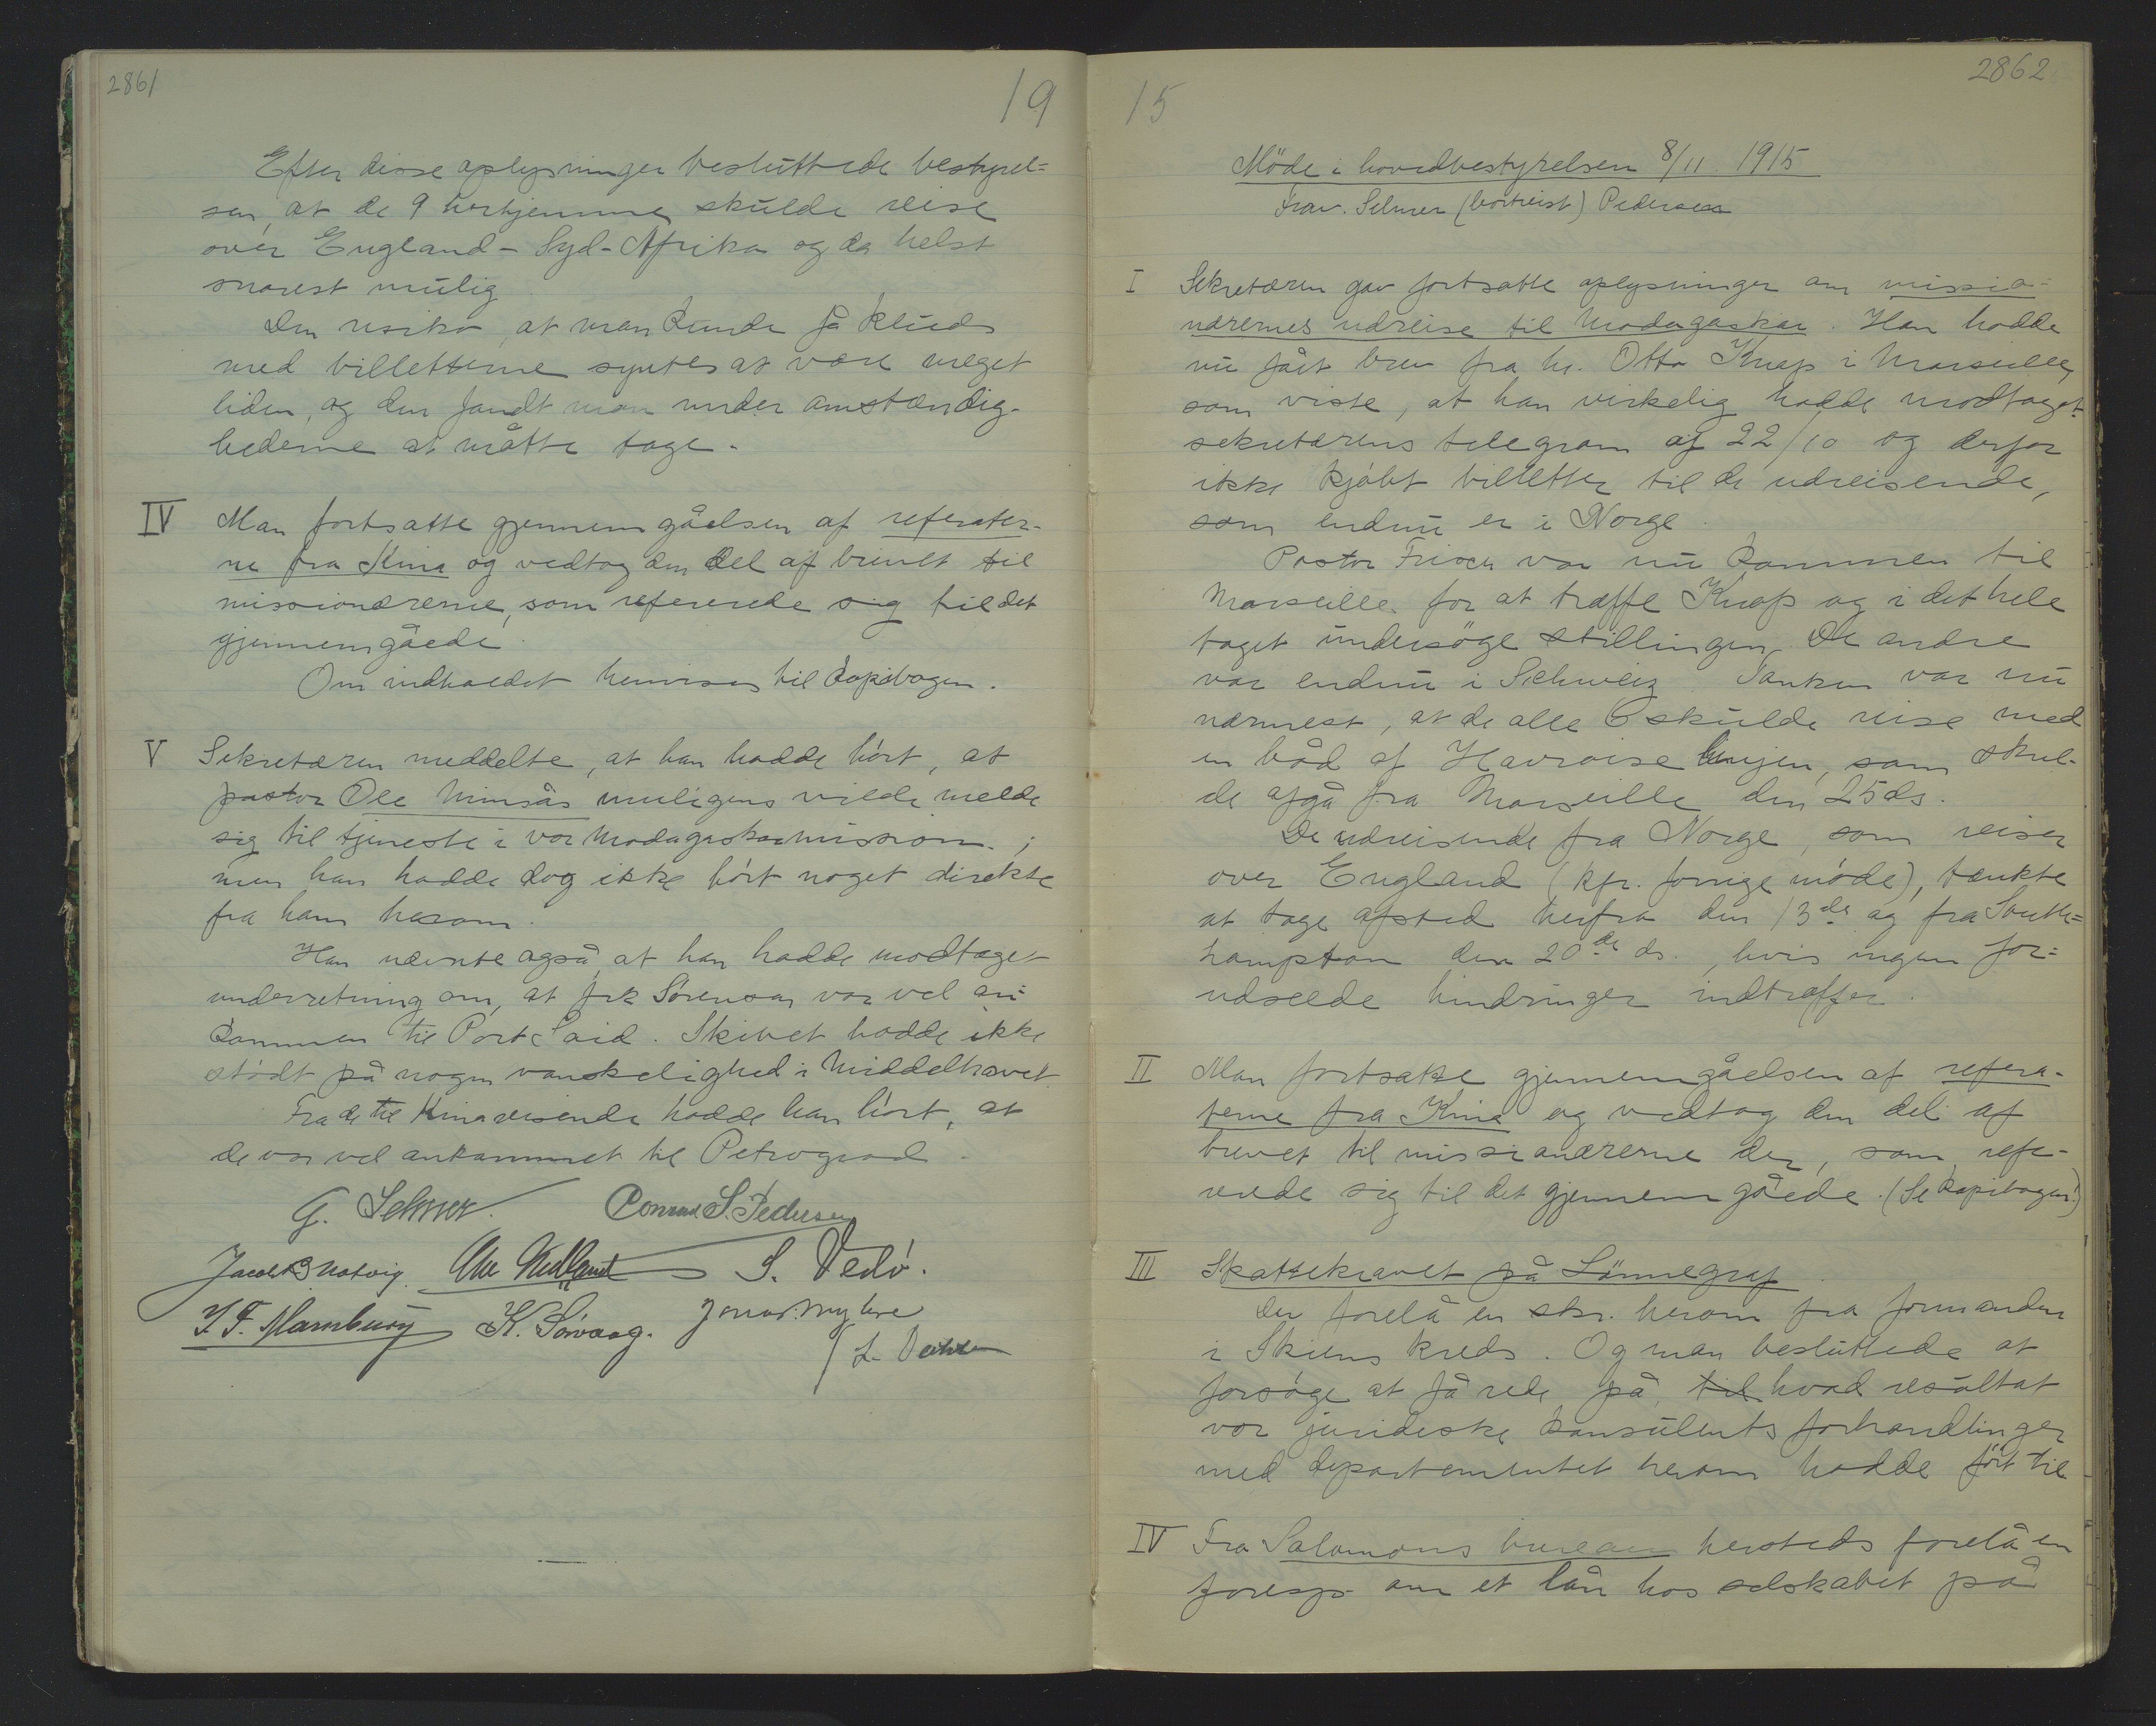 2861
19
Efter disse oplysninger besluttede bestyrel=
sen, at de 9 herhjemme skulde reise
over England - Syd-Afrika og da helst
snarest mulig
Den risiko, at man kunde få kluds
med billetterne syntes at være meget
liden, og den fandt man under omstændig-
hederne at måtte tage.
IV Man fortsatte gjennemgåelsen af referater-
ne fra Kina og vedtog den del af brevet til
missionærerne, som refererede sig til det
gjennemgåede.
Om indholdet henvises til kopibogen.
V Sekretæren meddelte, at han hadde hørt, at
pastor Ole Mimsås muligens vilde melde
sig til tjeneste i vor Madagaskarmission. ;
men han hadde dog ikke hørt noget direkte
fra ham herom.
Han nævnte også, at han hadde modtaget
underretning om, at frk Sørensen var vel an=
kommen til Port Said. Skibet hadde ikke
stødt på nogen vanskelighed i Middelhavet.
Fra de til Kina reisende hadde han hørt, at
de var vel ankommet til Petrograd.
G. Selmer. Conrad S. Pedersen
Jacob B Natvig. S. Vedø.
K. Sørvaag. Jonas Myhre
15
2862
Möde i hovedbestyrelsen 8/11. 1915
Frav. Selmer (bortreist) Pedersen
I Sekretæren gav fortsatte oplysninger om missio=
nærernes udreise til Madagaskar. Han hadde
nu fåt brev fra hr. Otto Knap i Marseille,
som viste, at han virkelig hadde modtaget
sekretærens telegram af 22/10 og derfor
ikke kjøbt billetter til de udreisende,
som endnu er i Norge.
Pastor Frisch var nu kommen til
Marseille for at træffe Knap og i det hele
taget undersöge stillingen. De andre
var endnu i Schweiz. Tanken var nu
nærmest, at de alle 6 skulde reise med
en båd af Havraise linjen, som skul-
de afgå fra Marseille den 25 ds.
De udreisende fra Norge, som reiser
over England (kfr. forrige møde), tænkte
at tage afsted herfra den 13de og fra South=
hampton den 20de ds., hvis ingen for=
udseede hindringer indtræffer.
II Man fortsatte gjennemgåelsen af refera-
terne fra Kina og vedtog den del af
brevet til missionærerne der, som refe-
rerede sig til det gjennemgåede. (Se kopibogen!)
III Skattekravet på Lönnegraf
Der forelå en skr. herom fra formanden
i Skiens kreds. Og man besluttede at
forsøge at få rede på, til hvad resultat
vor juridiske konsulents forhandlinger
med departementet herom hadde ført til
IV Fra Salomons bureau hersteds forelå en
foresp. om et lån hos selskabet på